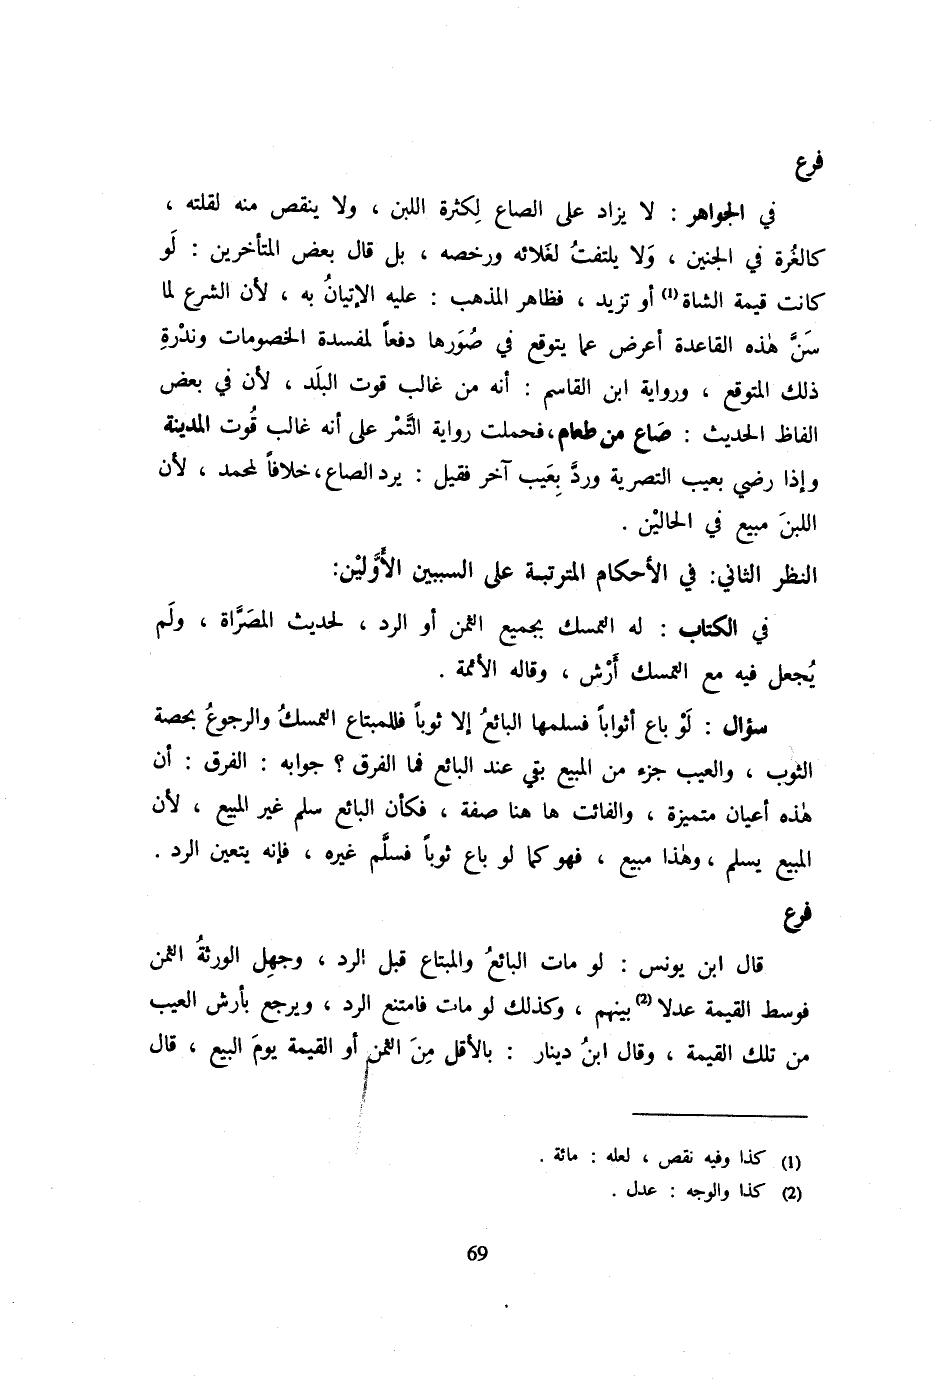 فرع
في الجواهر : لا يزاد على الصاع لِكثرة اللبن ، ولا ينقص منه لقلته ،
كالغُرة في الجنين ، وَلا يلتفتُ لغَلائه ورخصه ، بل قال بعض المتأخرين : لَو
كانت قيمة الشاة (1) أو تزيد ، فظاهر المذهب : عليه الإتيانُ به ، لأن الشرع لما
سَنَّ هٰذه القاعدة أعرض عما يتوقع في صُوَرها دفعاً لمفسدة الخصومات وندْرةِ
ذلك المتوقع ، ورواية ابن القاسم : أنه من غالب قوت البلَد ، لأن في بعض
الفاظ الحديث : صَاع من طعام،فحملت رواية التَّمْر على أنه غالب قُوت المدينة
وإذا رضي بعيب التصرية وردَّ بِعَيب آخر فقيل : يرد الصاع،خلافاً لمحمد ، لأن
اللبنَ مبيع في الحاليْن .
النظر الثاني: في الأحكام المترتبة على السببين الأَوَّليْن:
في الكتاب : له التمسك بجميع الثمن أو الرد ، لحديث المصَرَّاة ، ولَم
يُجعل فيه مع التمسك أَرْش ، وقاله الأئمة .
سؤال : لَوْ باع أثواباً فسلمها البائعُ إلا ثوباً فللمبتاع التمسكُ والرجوعُ بحصة
الثوب ، والعيب جزء من المبيع بقي عند البائع فما الفرق ؟ جوابه : الفرق : أن
هٰذه أعيان متميزة ، والفائت ها هنا صفة ، فكأن البائع سلم غير المبيع ، لأن
المبيع يسلم ، وهٰذا مبيع ، فهو كما لو باع ثوباً فسلَّم غيره ، فإنه يتعين الرد .
فرع
قال ابن يونس : لو مات البائعُ والمبتاع قبل الرد ، وجهِل الورثةُ الثمن
فوسط القيمة عدلا (2) بينهم ، وكذلك لو مات فامتنع الرد ، ويرجع بأرش العيب
من تلك القيمة ، وقال ابنُ دينار : بالأقل مِنَ الثمن أو القيمة يومَ البيع ، قال
(1) كذا وفيه نقص ، لعله : مائة .
(2) كذا والوجه : عدل .
69